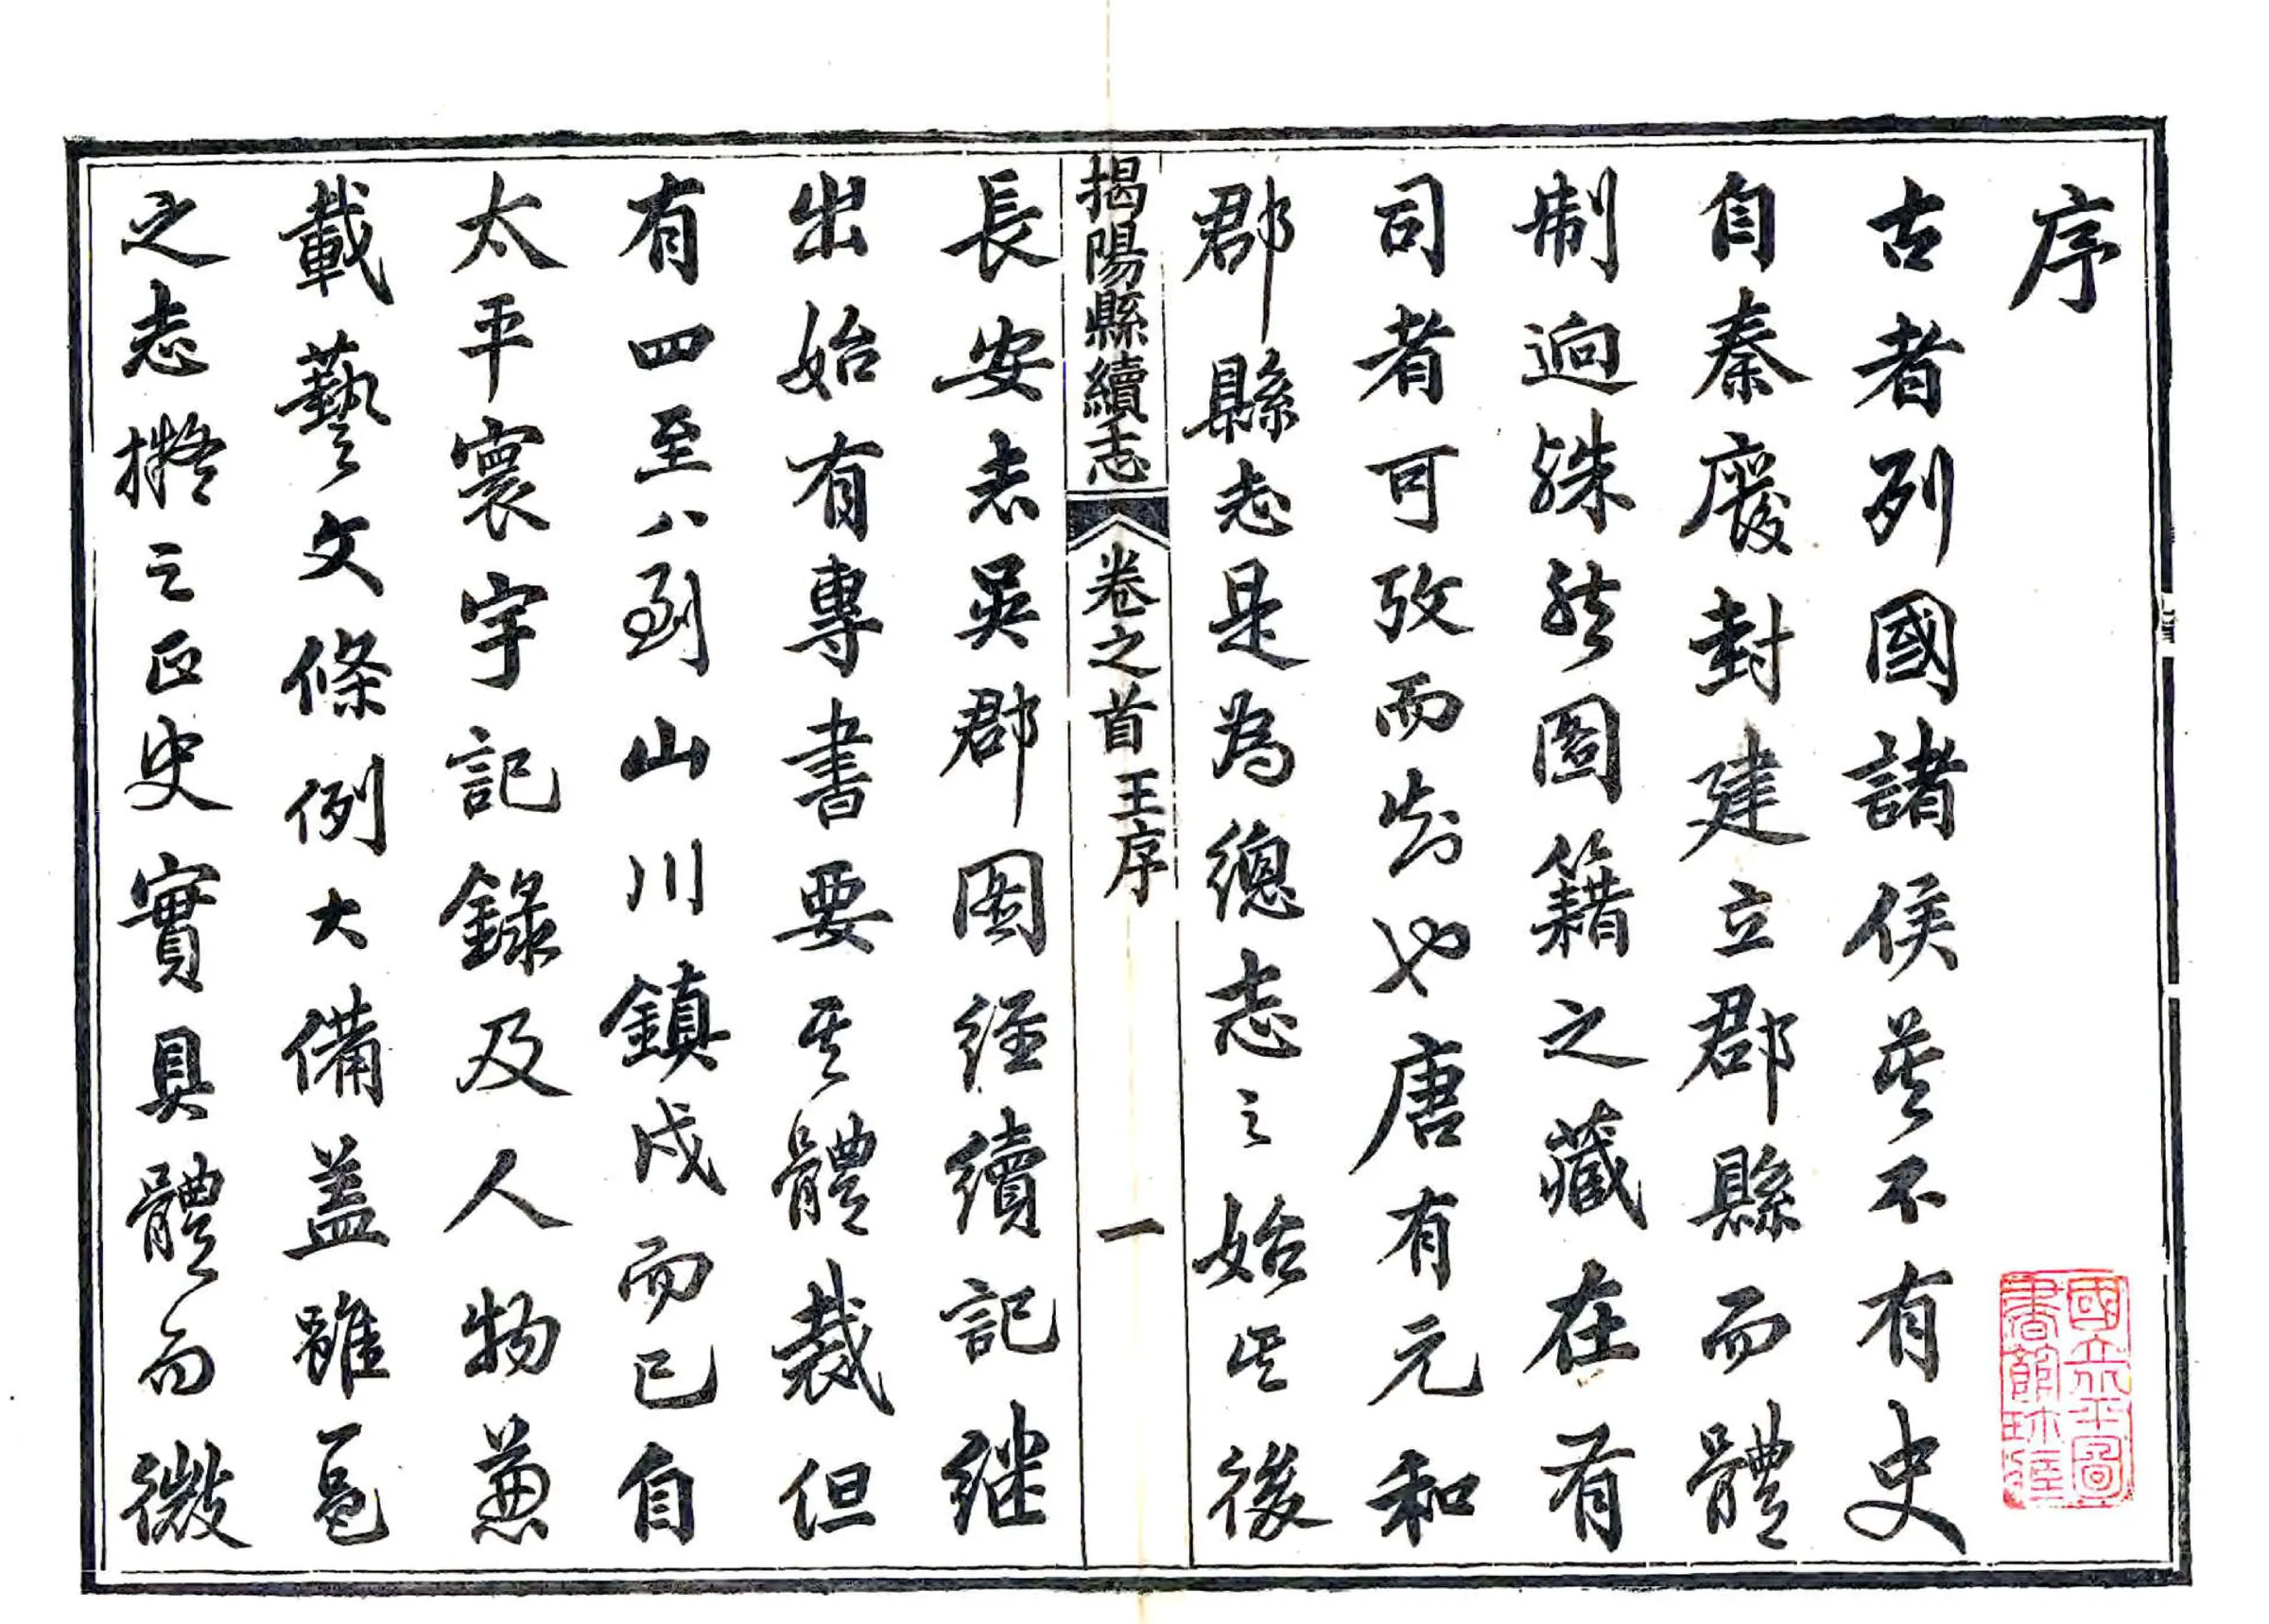 序
古者列國諸侯莫不有史
自秦廢封建立郡縣而體
制迥殊然圖籍之藏在有
司者可攷而知也唐有元和
郡縣志是為總志之始其後
揭陽縣續志
卷之首 王序
一
長安志吳郡圖經續記繼
出始有專書要其體裁但
有四至八到山川鎮戍而已自
太平寰宇記錄及人物兼
載藝文條例大備蓋雖一邑
之志擬之正史實具體而微